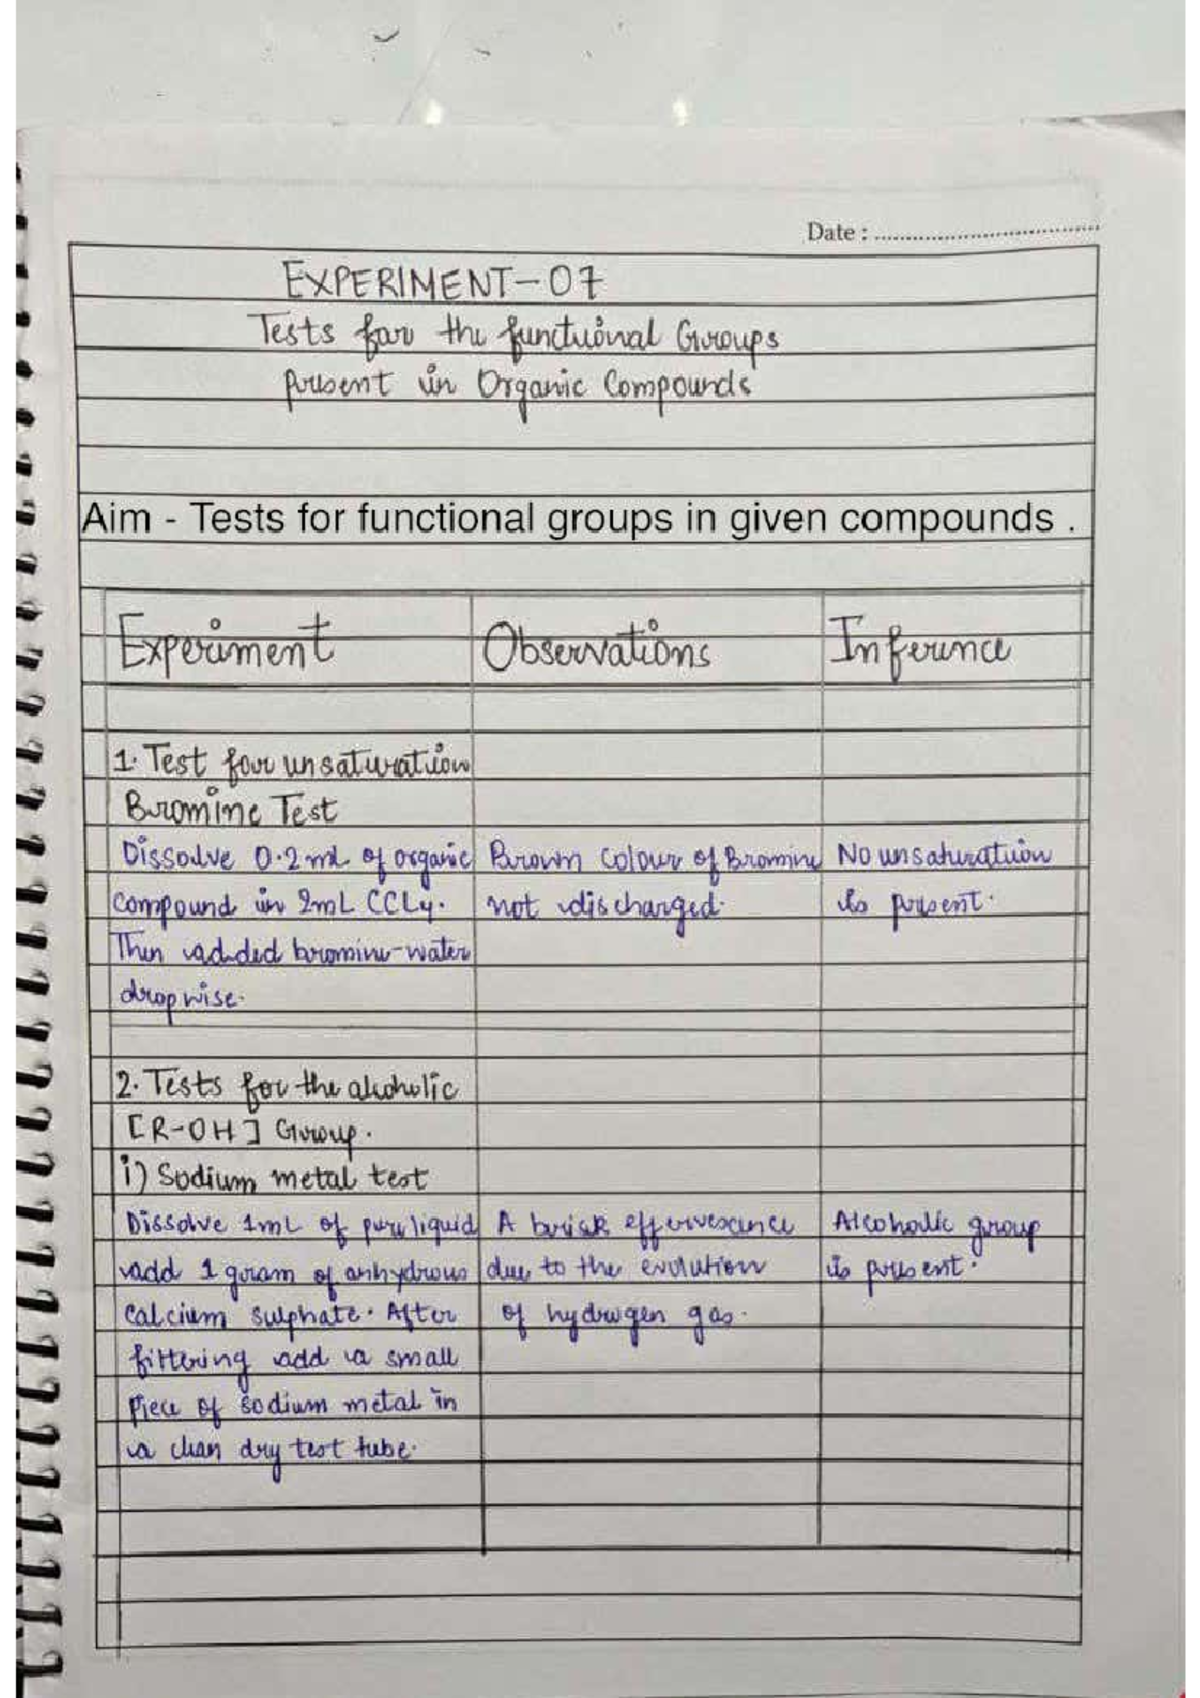 Date : ........................................
EXPERIMENT-07
Tests for the functional Groups
present in Organic Compounds
Aim - Tests for functional groups in given compounds .
Experiment Observations Inference
1. Test for unsaturation
Bromine Test
Dissolve 0.2 mL of organic Brown colour of Bromine No unsaturation
compound in 2mL CCL4. not discharged. is present.
Then added bromine-water
drop wise.
2. Tests for the alcoholic
[R-OH] Group.
i) Sodium metal test
Dissolve 1mL of pure liquid A brisk effervescence Alcoholic group
add 1 gram of anhydrous due to the evolution is present.
Calcium sulphate. After of hydrogen gas.
filtering add a small
Piece of sodium metal in
a clean dry test tube.